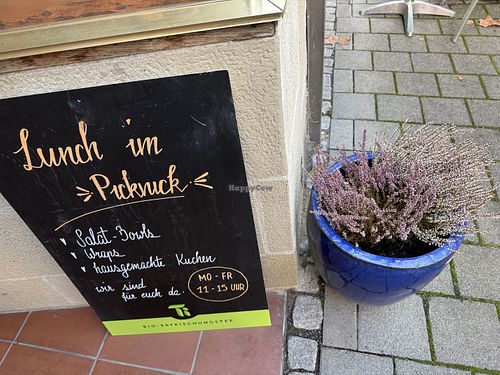 Lunch im
Picknick
Salat-Bowls
Wraps
hausgemachte Kuchen
wir sind
für euch da.
MO - FR
11 - 15 UHR
BIO-ERFRISCHUNGSTEE
HappyCow